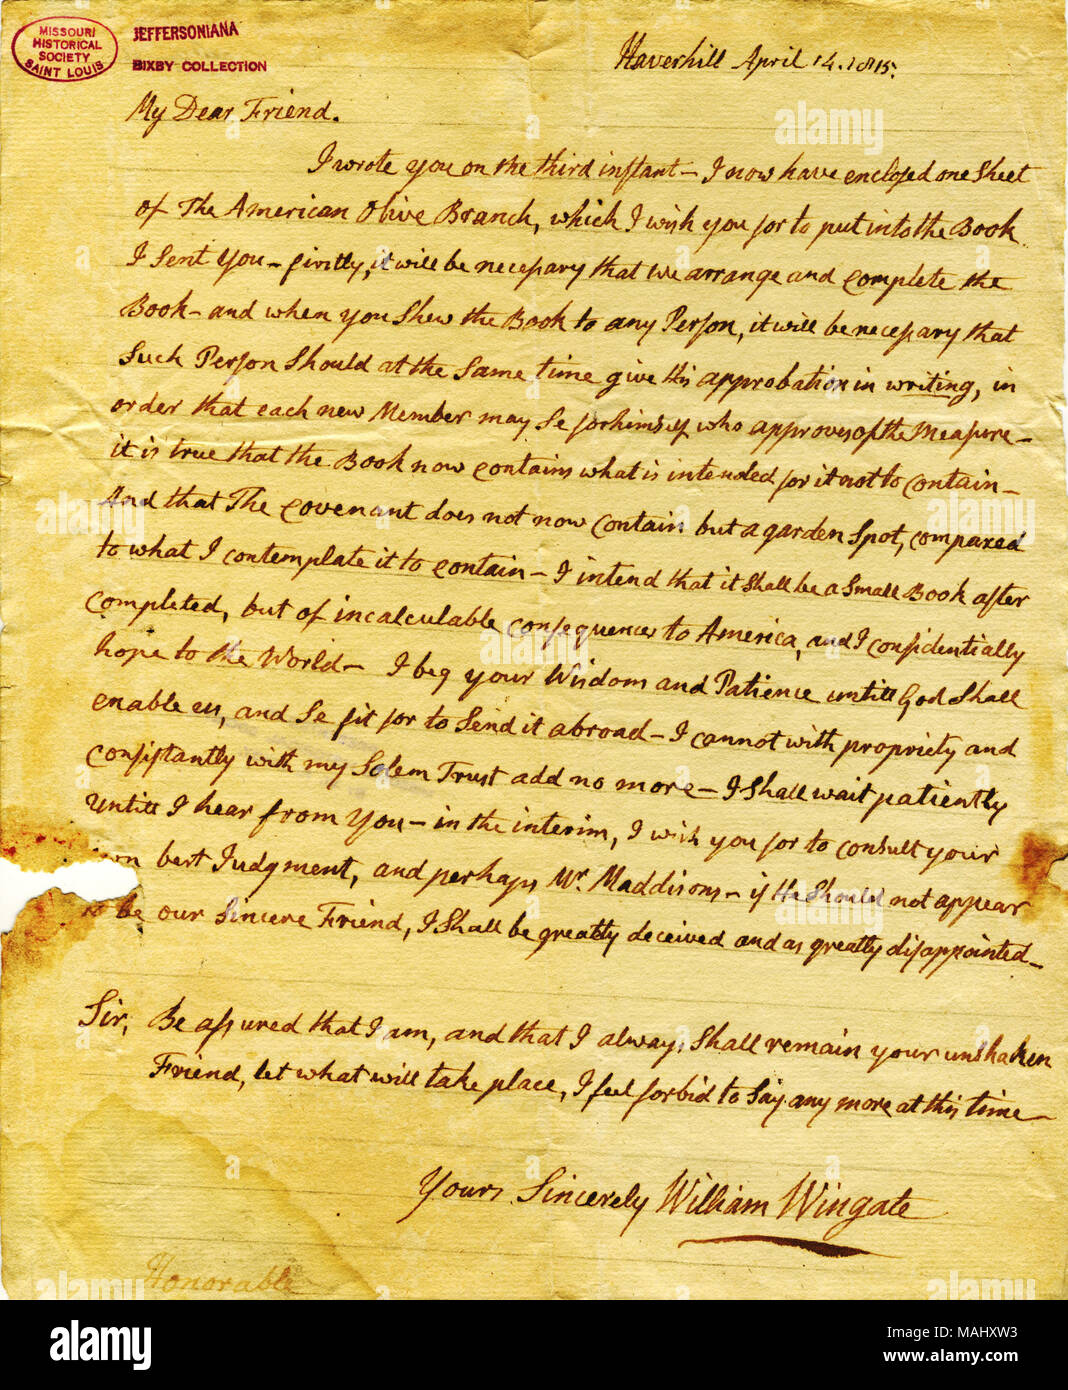 MISSOURI
HISTORICAL
SOCIETY
SAINT LOUIS
JEFFERSONIANA
BIXBY COLLECTION
Haverhill April 14. 1815.
My Dear Friend.
I wrote you on the third instant – I now have enclosed one Sheet
of The American Olive Branch, which I wish you for to put into the Book
I Sent You – firstly, it will be necessary that we arrange and complete the
Book – and when you Shew the Book to any Person, it will be necessary that
Such Person Should at the Same time give his approbation in writing, in
order that each new Member may Se for himself who approves of the Measure –
it is true that the Book now contains what is intended for it not to contain –
And that The Covenant does not now contain but a garden Spot, compared
to what I contemplate it to contain – I intend that it Shall be a Small Book after
completed, but of incalculable consequences to America, and I confidentially
hope to the World – I beg your Wisdom and Patience untill God Shall
enable us, and Se fit for to Send it abroad – I cannot with propriety and
consistantly with my Solem Trust add no more – I Shall wait patiently
Untill I hear from You – in the interim, I wish you for to consult your
own best Judgment, and perhaps Mr. Maddisons – if He Should not appear
to be our Sincere Friend, I Shall be greatly deceived and as greatly disappointed –
Sir, Be assured that I am, and that I always Shall remain your unshaken
Friend, let what will take place, I feel forbid to Say any more at this time –
Yours Sincerely William Wingate
Honorable
alamy
Image ID: MAHXW3
www.alamy.com